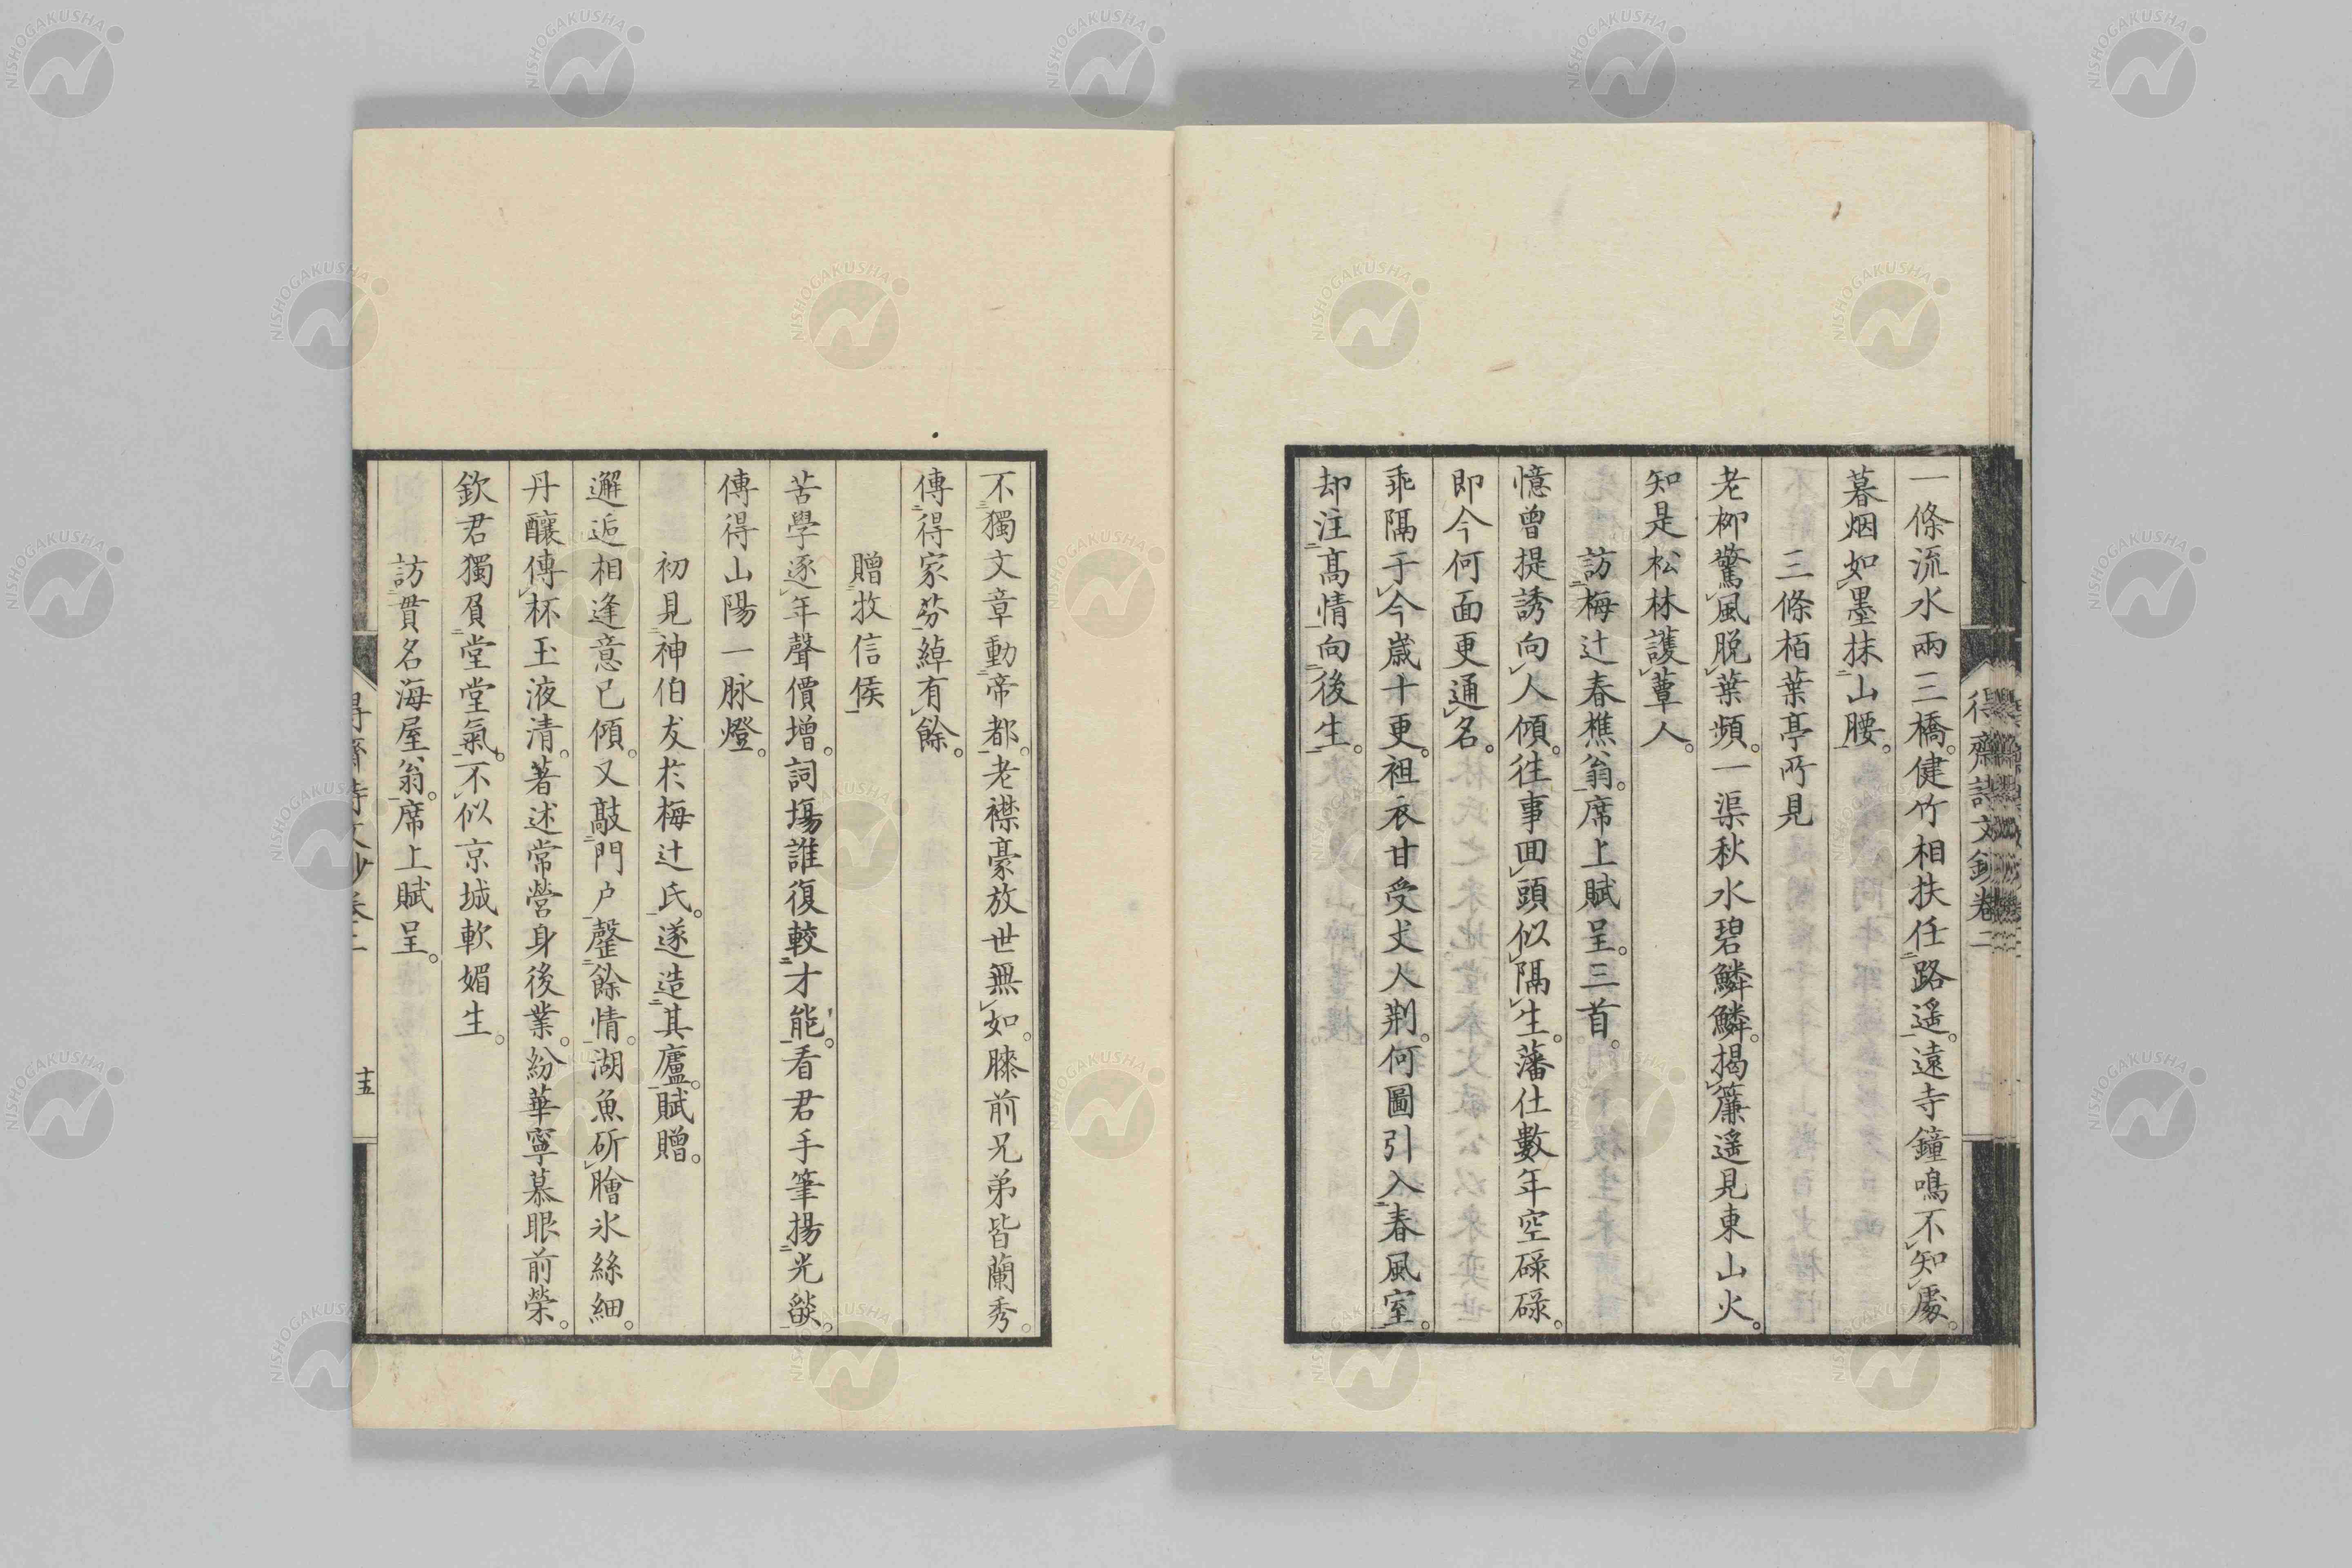 一條流水兩三橋。健竹相扶任路遥。遠寺鐘鳴不知處。
暮烟如墨抹山腰。
三條栢葉亭所見
老柳驚風脱葉頻。一渠秋水碧鱗鱗。揭簾遥見東山火。
知是松林護蕈人。
訪梅辻春樵翁。席上賦呈。三首。
憶曾提誘向人傾。往事囬頭似隔生。藩仕數年空碌碌。
即今何面更通名。
乖隔于今歲十更。袒衣甘受丈人荆。何圖引入春風室。
却注高情向後生。
不獨文章動帝都。老襟豪放世無如。膝前兄弟皆蘭秀。
傳得家芬綽有餘。
贈牧信侯
苦學逐年聲價增。詞塲誰復較才能。看君手筆揚光燄。
傳得山陽一脉燈。
初見神伯友於梅辻氏。遂造其廬。賦贈。
邂逅相逢意已傾。又敲門户罄餘情。湖魚斫膾氷絲細。
丹釀傳杯玉液清。著述常營身後業。紛華寧慕眼前榮。
欽君獨負堂堂氣。不似京城軟媚生。
訪貫名海屋翁。席上賦呈。
十五
NISHOGAKUSHA